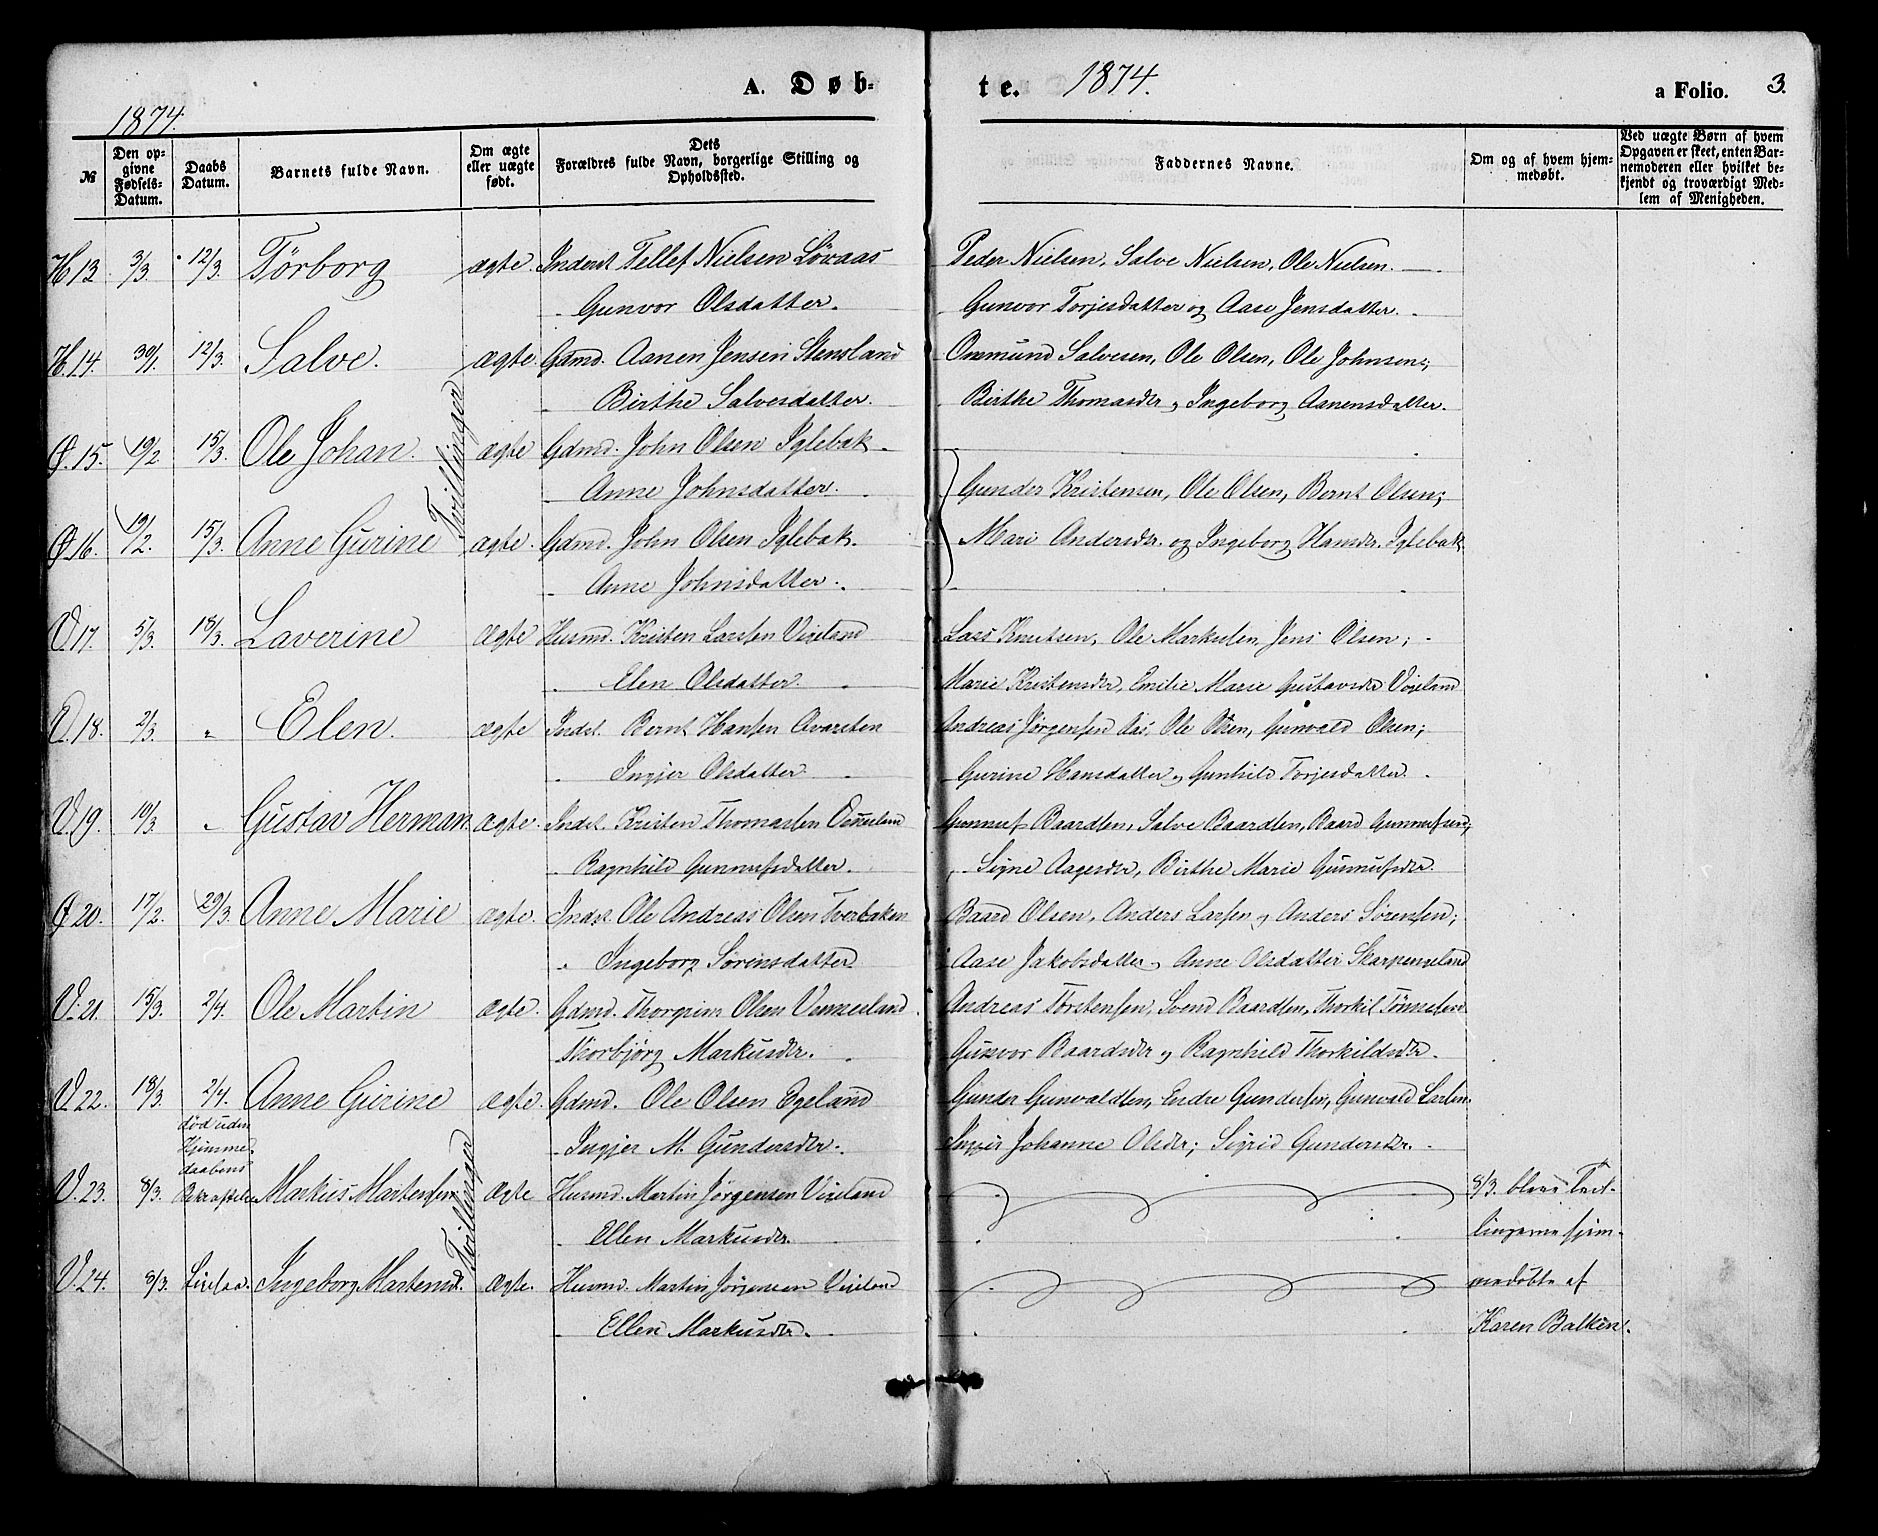 A. Døb- te. 1874. a Folio. 3.
1874.
№ Den opgivne Fødsels-Datum. Daabs Datum. Barnets fulde Navn. Om ægte eller uægte født. Dets Forældres fulde Navn, borgerlige Stilling og Opholdssted. Faddernes Navne. Om og af hvem hjemmedøbt. Ved uægte Børn af hvem Opgaven er skeet, enten Barnemoderen eller hvilket bekjendt og troværdigt Medlem af Menigheden.
H 13 3/3 12/3. Törborg ægte. Inderst Tellef Nielsen Lövaas Peder Nielsen, Salve Nielsen, Ole Nielsen.
Gunvor Olsdatter. Gunvor Torjesdatter og Aase Jensdatter.
H. 14. 30/1. 12/3. Salve. ægte. Gdmd. Aanen Jensen Stensland Onmund Salvesen, Ole Olsen, Ole Johnsen;
Birthe Salvesdatter. Birthe Thomasdtr og Ingeborg Aanensdatter.
Ø. 15. 19/2 15/3. Ole Johan. Tvillinger ægte Gdmd. John Olsen Iglebæk.
Anne Johnsdatter. Gunder Kristensen, Ole Olsen, Bernt Olsen;
Ø. 16. 19/2. 15/3. Anne Gurine ægte. Gdmd. John Olsen Iglebak. Mari Andersdtr. og Ingeborg Hansdtr. Iglebæk
Anne Johnsdatter.
V. 17. 5/3. 18/3. Laverine ægte Husmd. Kristen Larsen Vigeland Lars Knutsen, Ole Markusen, Jens Olsen;
Elen Olsdatter. Marie Kristensdtr, Emilie Marie Gustavsdtr Vigeland
V. 18. 2/3. " Elen. ægte Indst. Bernt Hansen Andreas Jørgensen Aas, Ole Olsen, Gunvald Olsen;
Ingjer Olsdatter Gurine Hansdatter og Gunhild Torjesdatter.
V. 19. 10/3. " Gustav Herman ægte. Indst. Kristen Thomassen Gunnuf Baardsen, Salve Baardsen, Baard Gunnufsen;
Ragnhild Gunnufsdatter. Signe Aagesdtr, Birthe Marie Gunnufsdtr.
Ø 20. 17/2. 29/3. Anne Marie ægte. Indst. Ole Andreas Olsen Tverbakken Baard Olsen, Anders Larsen og Anders Sørensen;
Ingeborg Sörinsdatter Aase Jakobsdatter, Anne Olsdatter Skarpengland
V. 21. 15/3. 2/4. Ole Martin ægte. Gdmd. Thorgrim Olsen Vennesland. Andreas Torstensen, Svend Baardsen, Thorkil Tönnesen
Thorbjörg Markusdtr. Gunvor Baardsdtr og Ragnhild Thorkildsdtr.
V. 22. 18/3. 2/4. Anne Gurine ægte. Gdmd. Ole Olsen Egeland Gunder Gunvaldsen, Endre Gundersen, Gunvald Larsen.
død uden Hjemmedaabens Ingjer M. Gundersdtr. Ingjer Johanne Olsdtr; Sigrid Gundersdtr.
V. 23. 8/3. Bekræftelse Markus Martensen Tvillinger Ægte Husmd. Martin Jørgensen Vigeland 8/3. bleve Tvil-
Ellen Markusdtr lingerne hjem-
V. 24. 8/3. Ligesaa. Ingeborg Martensd. ægte. Husmd. Martin Jørgensen Vigeland medøbte af
Ellen Markusdtr. Karen Balken.